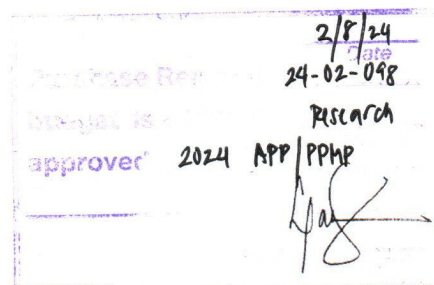 2/8/24
Date
Purchase Re
24-02-098
budget is
Research
approved 2024 APP/PPMP